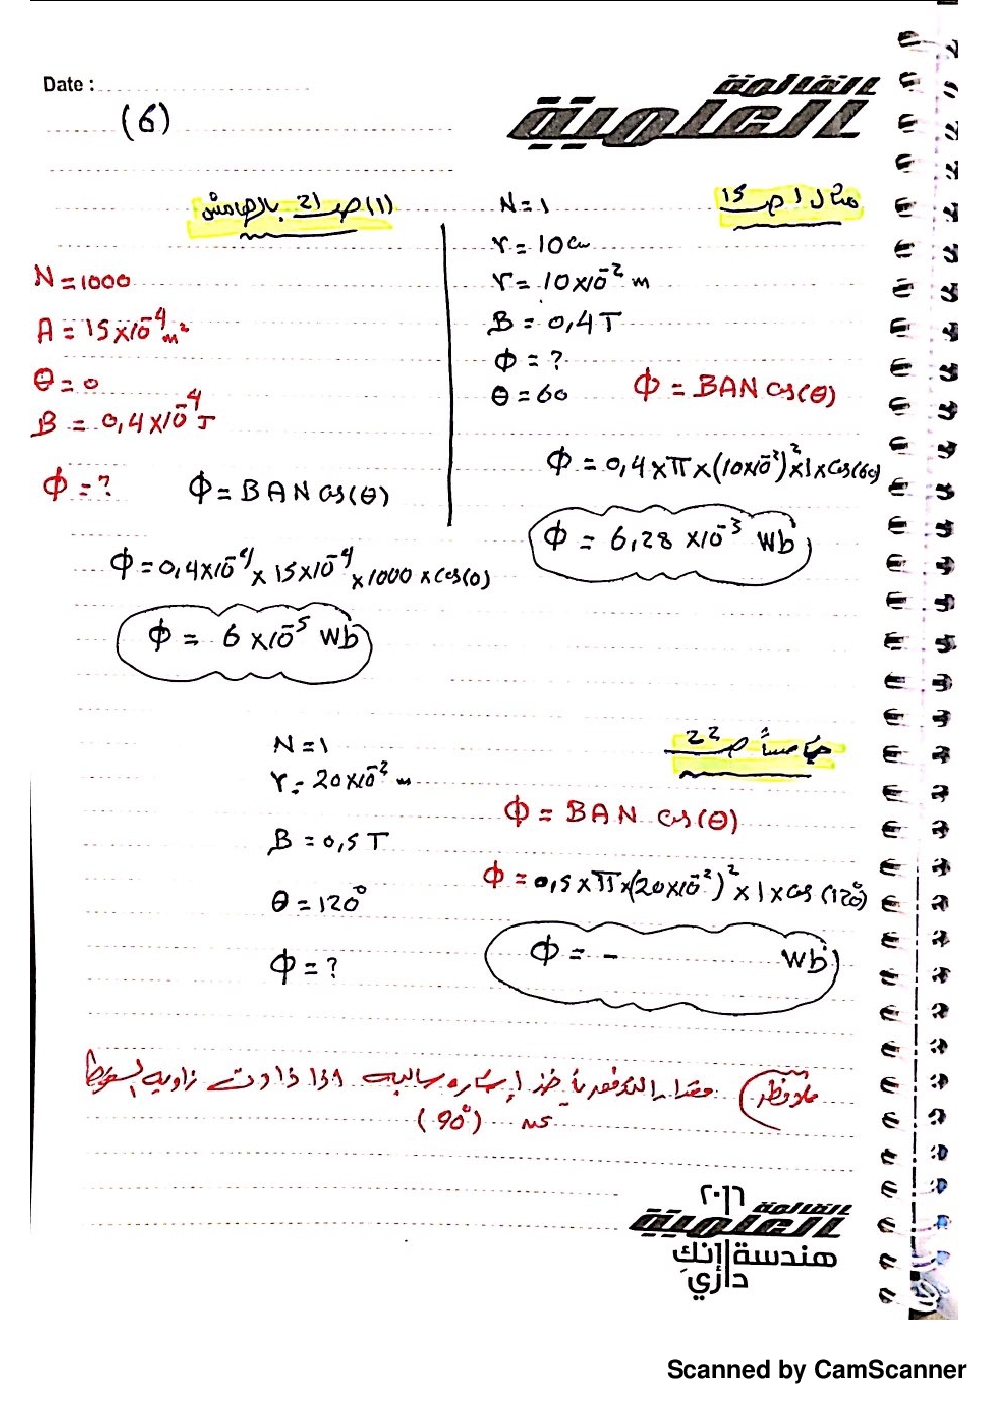 Date :
(6)
القائمة
العلمية
مثال 1 ص 15
N = 1
r = 10 cm
r = 10×10⁻² m
B = 0,4 T
Φ = ?
θ = 60
Φ = BAN cos(θ)
Φ = 0,4 × π × (10×10⁻²)² × 1 × cos(60)
Φ = 6,28 ×10⁻³ wb
(1) ص 21 بالهامش
N = 1000
A = 15×10⁻⁴ m²
θ = 0
B = 0,4×10⁻⁴ T
Φ = ?
Φ = BAN cos(θ)
Φ = 0,4×10⁻⁴ × 15×10⁻⁴ × 1000 × cos(0)
Φ = 6×10⁻⁵ wb
خامساً ص 22
N = 1
r = 20×10⁻² m
B = 0,5 T
θ = 120°
Φ = ?
Φ = BAN cos(θ)
Φ = 0,5 × π × (20×10⁻²)² × 1 × cos(120°)
Φ = - wb
ملاحظة مقدار التدفق يأخذ إشاره سالبه اذا زادت زاويه السقوط
عن (90°)
٢٠١٦
القائمة
العلمية
هندسة إنكِ
داري
Scanned by CamScanner